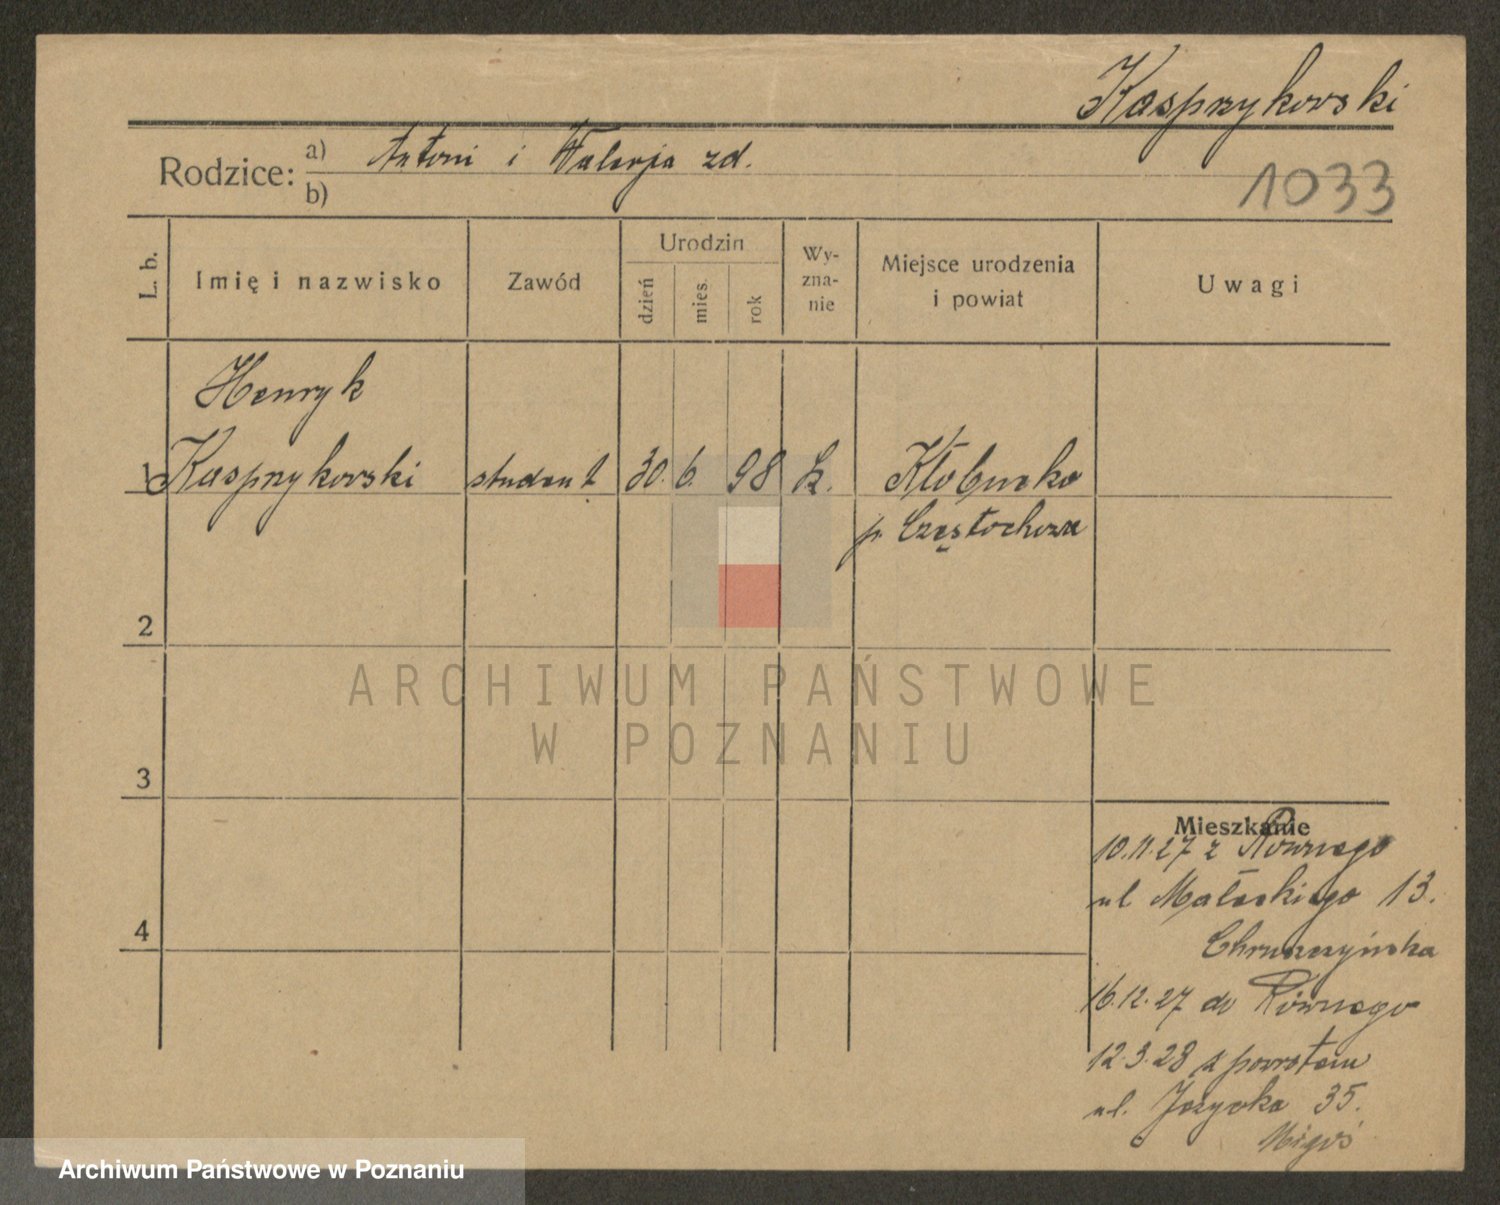 Kasprzykowski
Rodzice: a) Antoni i Walerja zd.
b)
1033
L. b.
Imię i nazwisko
Zawód
Urodzin
dzień
mies.
rok
Wy-
zna-
nie
Miejsce urodzenia
i powiat
Uwagi
Henryk
1 Kasprzykowski student 30. 6. 98 k. Kłobucko
p. Częstochowa
2
3
4
Mieszkanie
10.11.27 z Równego
ul. Małeckiego 13.
Chruszczyńska
16.12.27 do Równego
12.3.28 z powrotem
ul. Jeżycka 35.
Migoś
ARCHIWUM PAŃSTWOWE
W POZNANIU
Archiwum Państwowe w Poznaniu